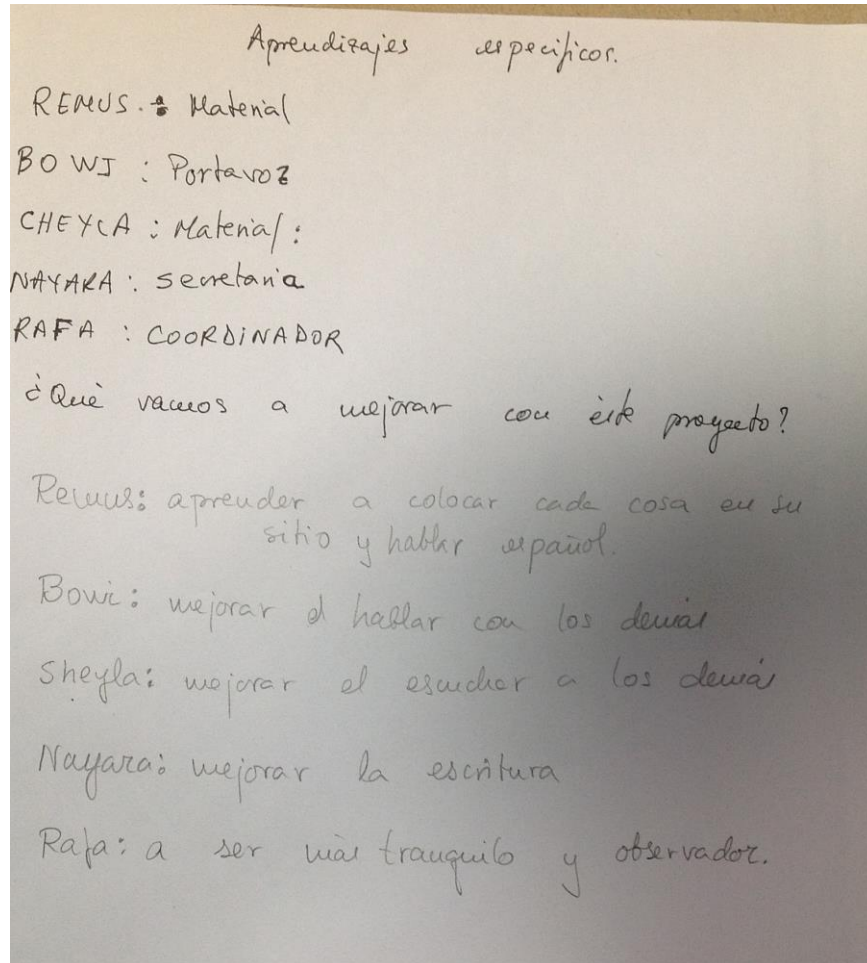 Aprendizajes especificos.
REMUS. : Material
BOWI : Portavoz
CHEYLA : Material :
NAYARA : secretaria
RAFA : COORDINADOR
¿Què vamos a mejorar con èste proyecto?
Remus: aprender a colocar cada cosa en su
sitio y hablar español.
Bowi: mejorar el hablar con los demás
Sheyla: mejorar el escuchar a los demás
Nayara: mejorar la escritura
Rafa: a ser màs tranquilo y observador.